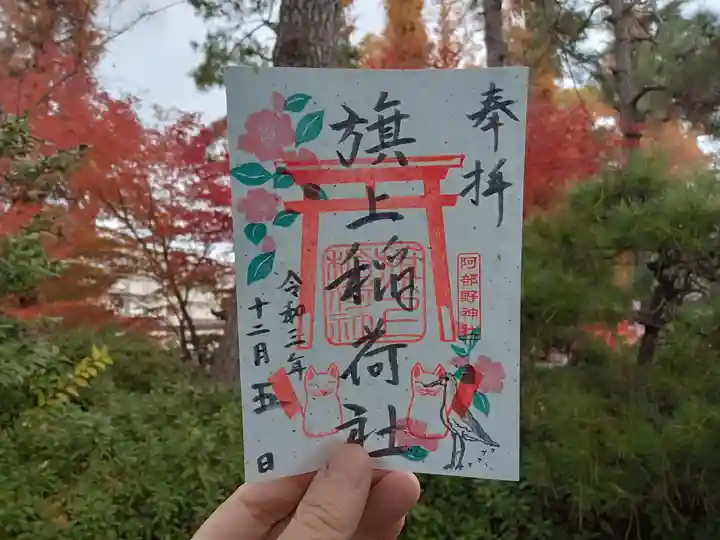 奉拝
阿部野神社
旗上稲荷社
令和三年
十二月五日